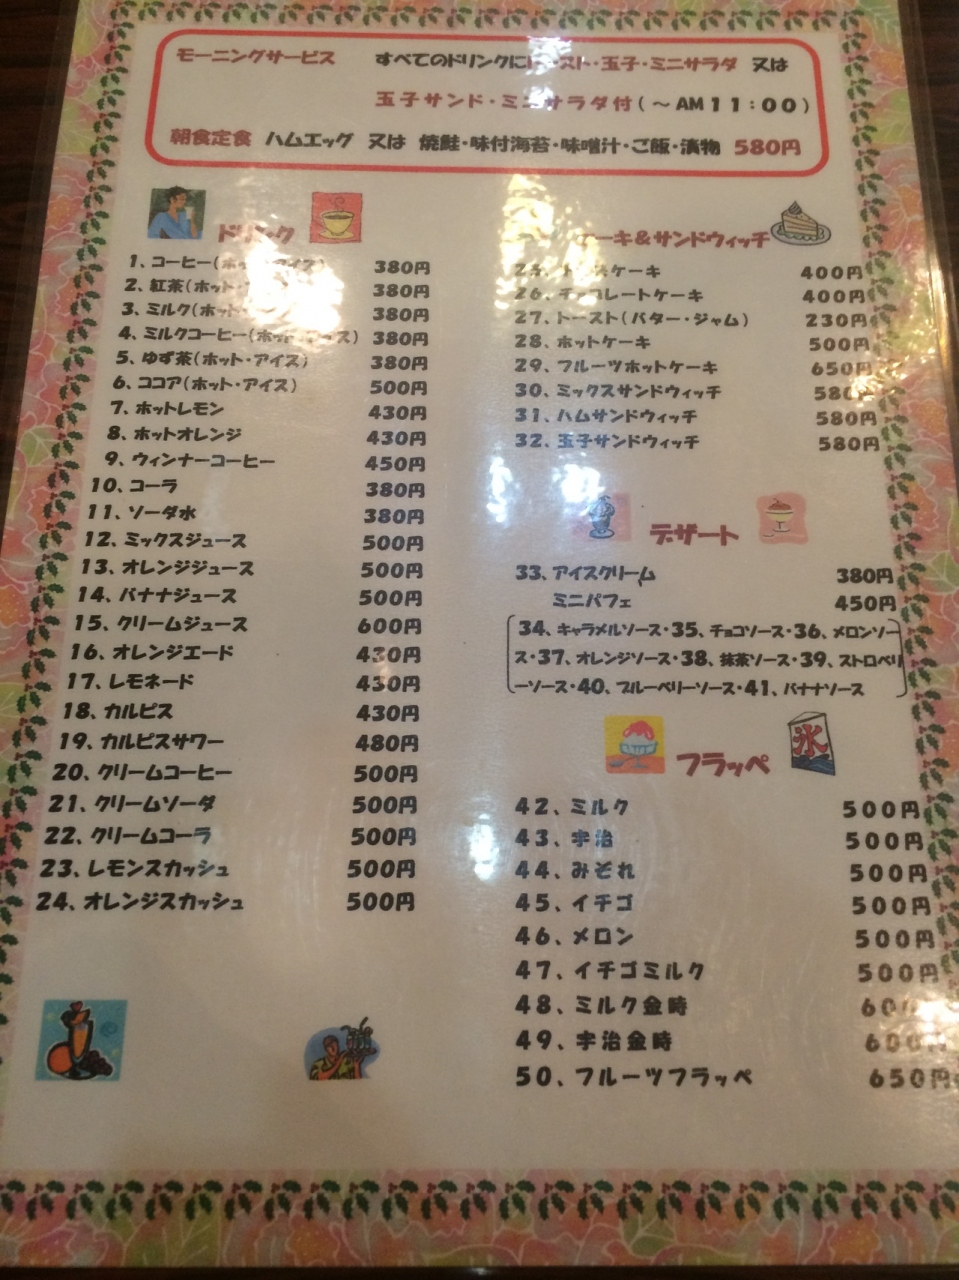 モーニングサービス すべてのドリンクにトースト・玉子・ミニサラダ 又は
玉子サンド・ミニサラダ付(～AM11:00)
朝食定食 ハムエッグ 又は 焼鮭・味付海苔・味噌汁・ご飯・漬物 580円
ドリンク
1、コーヒー(ホット・アイス) 380円
2、紅茶(ホット・ 380円
3、ミルク(ホット・ 380円
4、ミルクコーヒー(ホット・アイス) 380円
5、ゆず茶(ホット・アイス) 380円
6、ココア(ホット・アイス) 500円
7、ホットレモン 430円
8、ホットオレンジ 430円
9、ウィンナーコーヒー 450円
10、コーラ 380円
11、ソーダ水 380円
12、ミックスジュース 500円
13、オレンジジュース 500円
14、バナナジュース 500円
15、クリームジュース 600円
16、オレンジエード 430円
17、レモネード 430円
18、カルピス 430円
19、カルピスサワー 480円
20、クリームコーヒー 500円
21、クリームソーダ 500円
22、クリームコーラ 500円
23、レモンスカッシュ 500円
24、オレンジスカッシュ 500円
ケーキ&サンドウィッチ
25、 ケーキ 400円
26、チョコレートケーキ 400円
27、トースト(バター・ジャム) 230円
28、ホットケーキ 500円
29、フルーツホットケーキ 650円
30、ミックスサンドウィッチ 580円
31、ハムサンドウィッチ 580円
32、玉子サンドウィッチ 580円
デザート
33、アイスクリーム 380円
ミニパフェ 450円
34、キャラメルソース・35、チョコソース・36、メロンソー
ス・37、オレンジソース・38、抹茶ソース・39、ストロベリ
ーソース・40、ブルーベリーソース・41、バナナソース
氷
フラッペ
42、ミルク 500円
43、宇治 500円
44、みぞれ 500円
45、イチゴ 500円
46、メロン 500円
47、イチゴミルク 500円
48、ミルク金時 600円
49、宇治金時 600円
50、フルーツフラッペ 650円